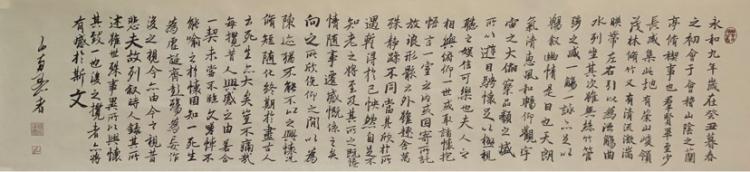 永和九年歲在癸丑暮春
之初會于會稽山陰之蘭
亭脩稧事也羣賢畢至少
長咸集此地有崇山峻領
茂林脩竹又有清流激湍
暎帶左右引以為流觴曲
水列坐其次雖無絲竹管
弦之盛一觴一詠亦足以
暢敘幽情是日也天朗
氣清惠風和暢仰觀宇
宙之大俯察品類之盛
所以遊目騁懷足以極視
聽之娛信可樂也夫人之
相與俯仰一世或取諸懷抱
悟言一室之內或因寄所託
放浪形骸之外雖趣舍萬
殊靜躁不同當其欣於所
遇蹔得於己怏然自足不
知老之將至及其所之既惓
情隨事遷感慨係之矣
向之所欣俛仰之閒以為
陳迹猶不能不以之興懷況
脩短隨化終期於盡古人
云死生亦大矣豈不痛哉
每攬昔人興感之由若合
一契未嘗不臨文嗟悼不
能喻之於懷固知一死生
為虛誕齊彭殤為妄作
後之視今亦由今之視昔
悲夫故列敘時人錄其所
述雖世殊事異所以興懷
其致一也後之攬者亦將
有感於斯文